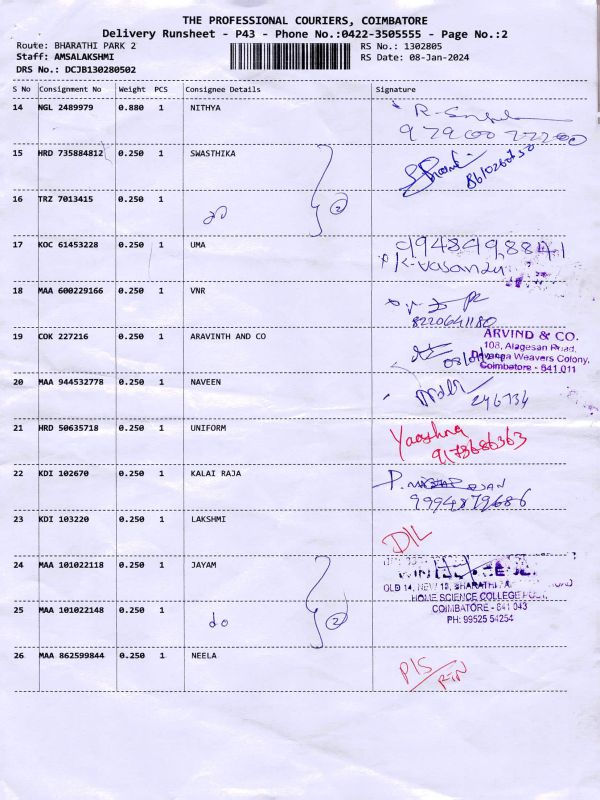 THE PROFESSIONAL COURIERS, COIMBATORE
Delivery Runsheet - P43 - Phone No.:0422-3505555 - Page No.:2
Route: BHARATHI PARK 2 RS No.: 1302805
Staff: AMSALAKSHMI RS Date: 08-Jan-2024
DRS No.: DCJB130280502
S No Consignment No Weight PCS Consignee Details Signature
14 NGL 2489979 0.880 1 NITHYA
15 HRD 735884812 0.250 1 SWASTHIKA
8610260730
16 TRZ 7013415 0.250 1 2
17 KOC 61453228 0.250 1 UMA
K. Vasandu
18 MAA 600229166 0.250 1 VNR
8220641180
19 COK 227216 0.250 1 ARAVINTH AND CO ARVIND & CO.
108, Alagesan Road,
Devanga Weavers Colony,
Coimbatore - 641 011
20 MAA 944532778 0.250 1 NAVEEN
246734
21 HRD 50635718 0.250 1 UNIFORM Yaashna
9173686363
22 KDI 102670 0.250 1 KALAI RAJA
9994879686
23 KDI 103220 0.250 1 LAKSHMI D/L
24 MAA 101022118 0.250 1 JAYAM
OLD 14, NEW 13, BHARATHI ROAD
HOME SCIENCE COLLEGE POST,
25 MAA 101022148 0.250 1 do 2 COIMBATORE - 641 043
PH: 99525 54254
26 MAA 862599844 0.250 1 NEELA P/S